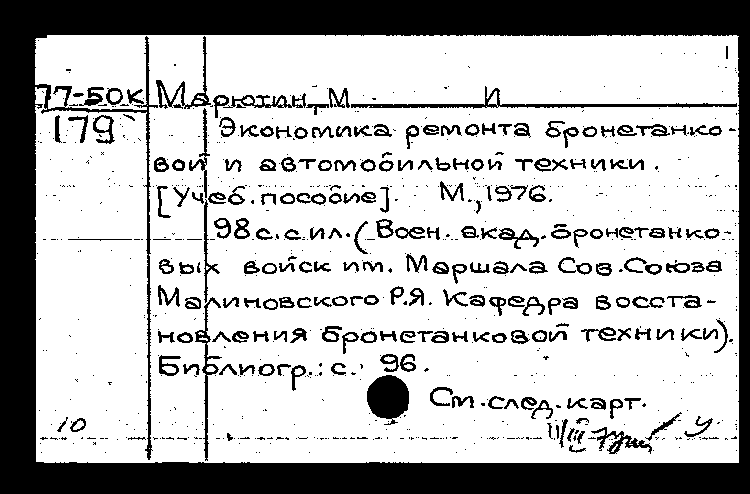 1
77-50К Марютин, М И
179 Экономика ремонта бронетанко-
вой и автомобильной техники.
[Учеб. пособие]. М., 1976.
98 с. с ил. (Воен. акад. бронетанко-
вых войск им. Маршала Сов. Союза
Малиновского Р.Я. Кафедра восста-
новления бронетанковой техники).
Библиогр.: с. 96.
См. след. карт.
10 У